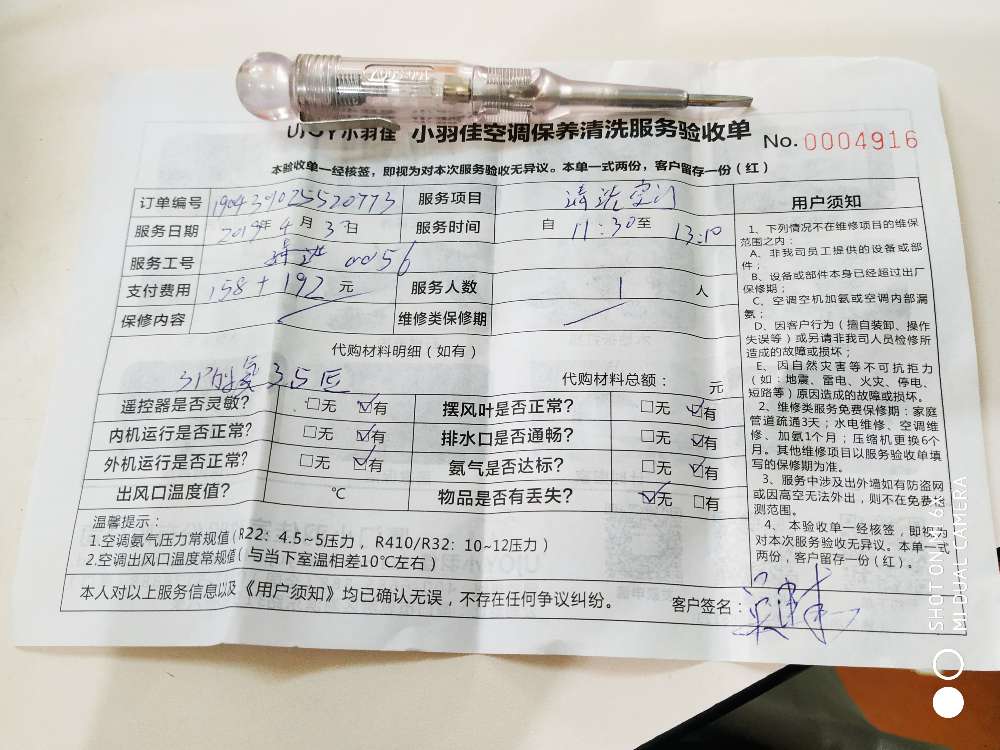 UJOY小羽佳 小羽佳空调保养清洗服务验收单 No.0004916
本验收单一经核签，即视为对本次服务验收无异议。本单一式两份，客户留存一份（红）
订单编号 服务项目 清洗空调
服务日期 2019年4月3日 服务时间 自11:30至13:10
服务工号 056
支付费用 158+192元 服务人数 1人
保修内容 维修类保修期
代购材料明细（如有）
3.5 代购材料总额： 元
遥控器是否灵敏？ □无 ☑有 摆风叶是否正常？ □无 ☑有
内机运行是否正常？ □无 ☑有 排水口是否通畅？ □无 ☑有
外机运行是否正常？ □无 ☑有 氨气是否达标？ □无 ☑有
出风口温度值？ ℃ 物品是否有丢失？ ☑无 □有
温馨提示：
1.空调氨气压力常规值（R22：4.5~5压力，R410/R32：10~12压力）
2.空调出风口温度常规值（与当下室温相差10℃左右）
本人对以上服务信息以及《用户须知》均已确认无误，不存在任何争议纠纷。 客户签名：
用户须知
1、下列情况不在维修项目的维保
范围之内：
A、非我司员工提供的设备或部
件；
B、设备或部件本身已经超过出厂
保修期；
C、空调空机加氨或空调内部漏
氨；
D、因客户行为（擅自装卸、操作
失误等）或另请非我司人员检修所
造成的故障或损坏；
E、因自然灾害等不可抗拒力
（如：地震、雷电、火灾、停电、
短路等）原因造成的故障或损坏。
2、维修类服务免费保修期：家庭
管道疏通3天；水电维修、空调维
修、加氨1个月；压缩机更换6个
月。其他维修项目以服务验收单填
写的保修期为准。
3、服务中涉及出外墙如有防盗网
或因高空无法外出，则不在免费检
测范围。
4、本验收单一经核签，即视为
对本次服务验收无异议。本单一式
两份，客户留存一份（红）。
SHOT ON MI 6X
MI DUAL CAMERA